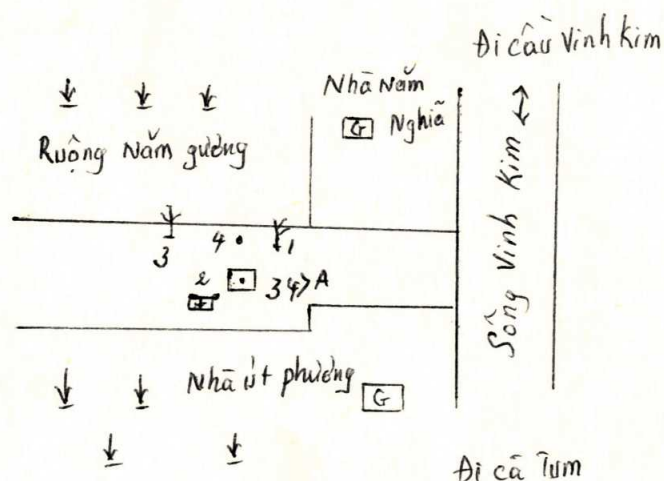 Đi cầu Vinh Kim
Nhà Năm
G Nghiã
Ruộng Năm gường
Sông Vinh Kim
3
4
1
2
34> A
Nhà út phường
G
Đi cã Tum